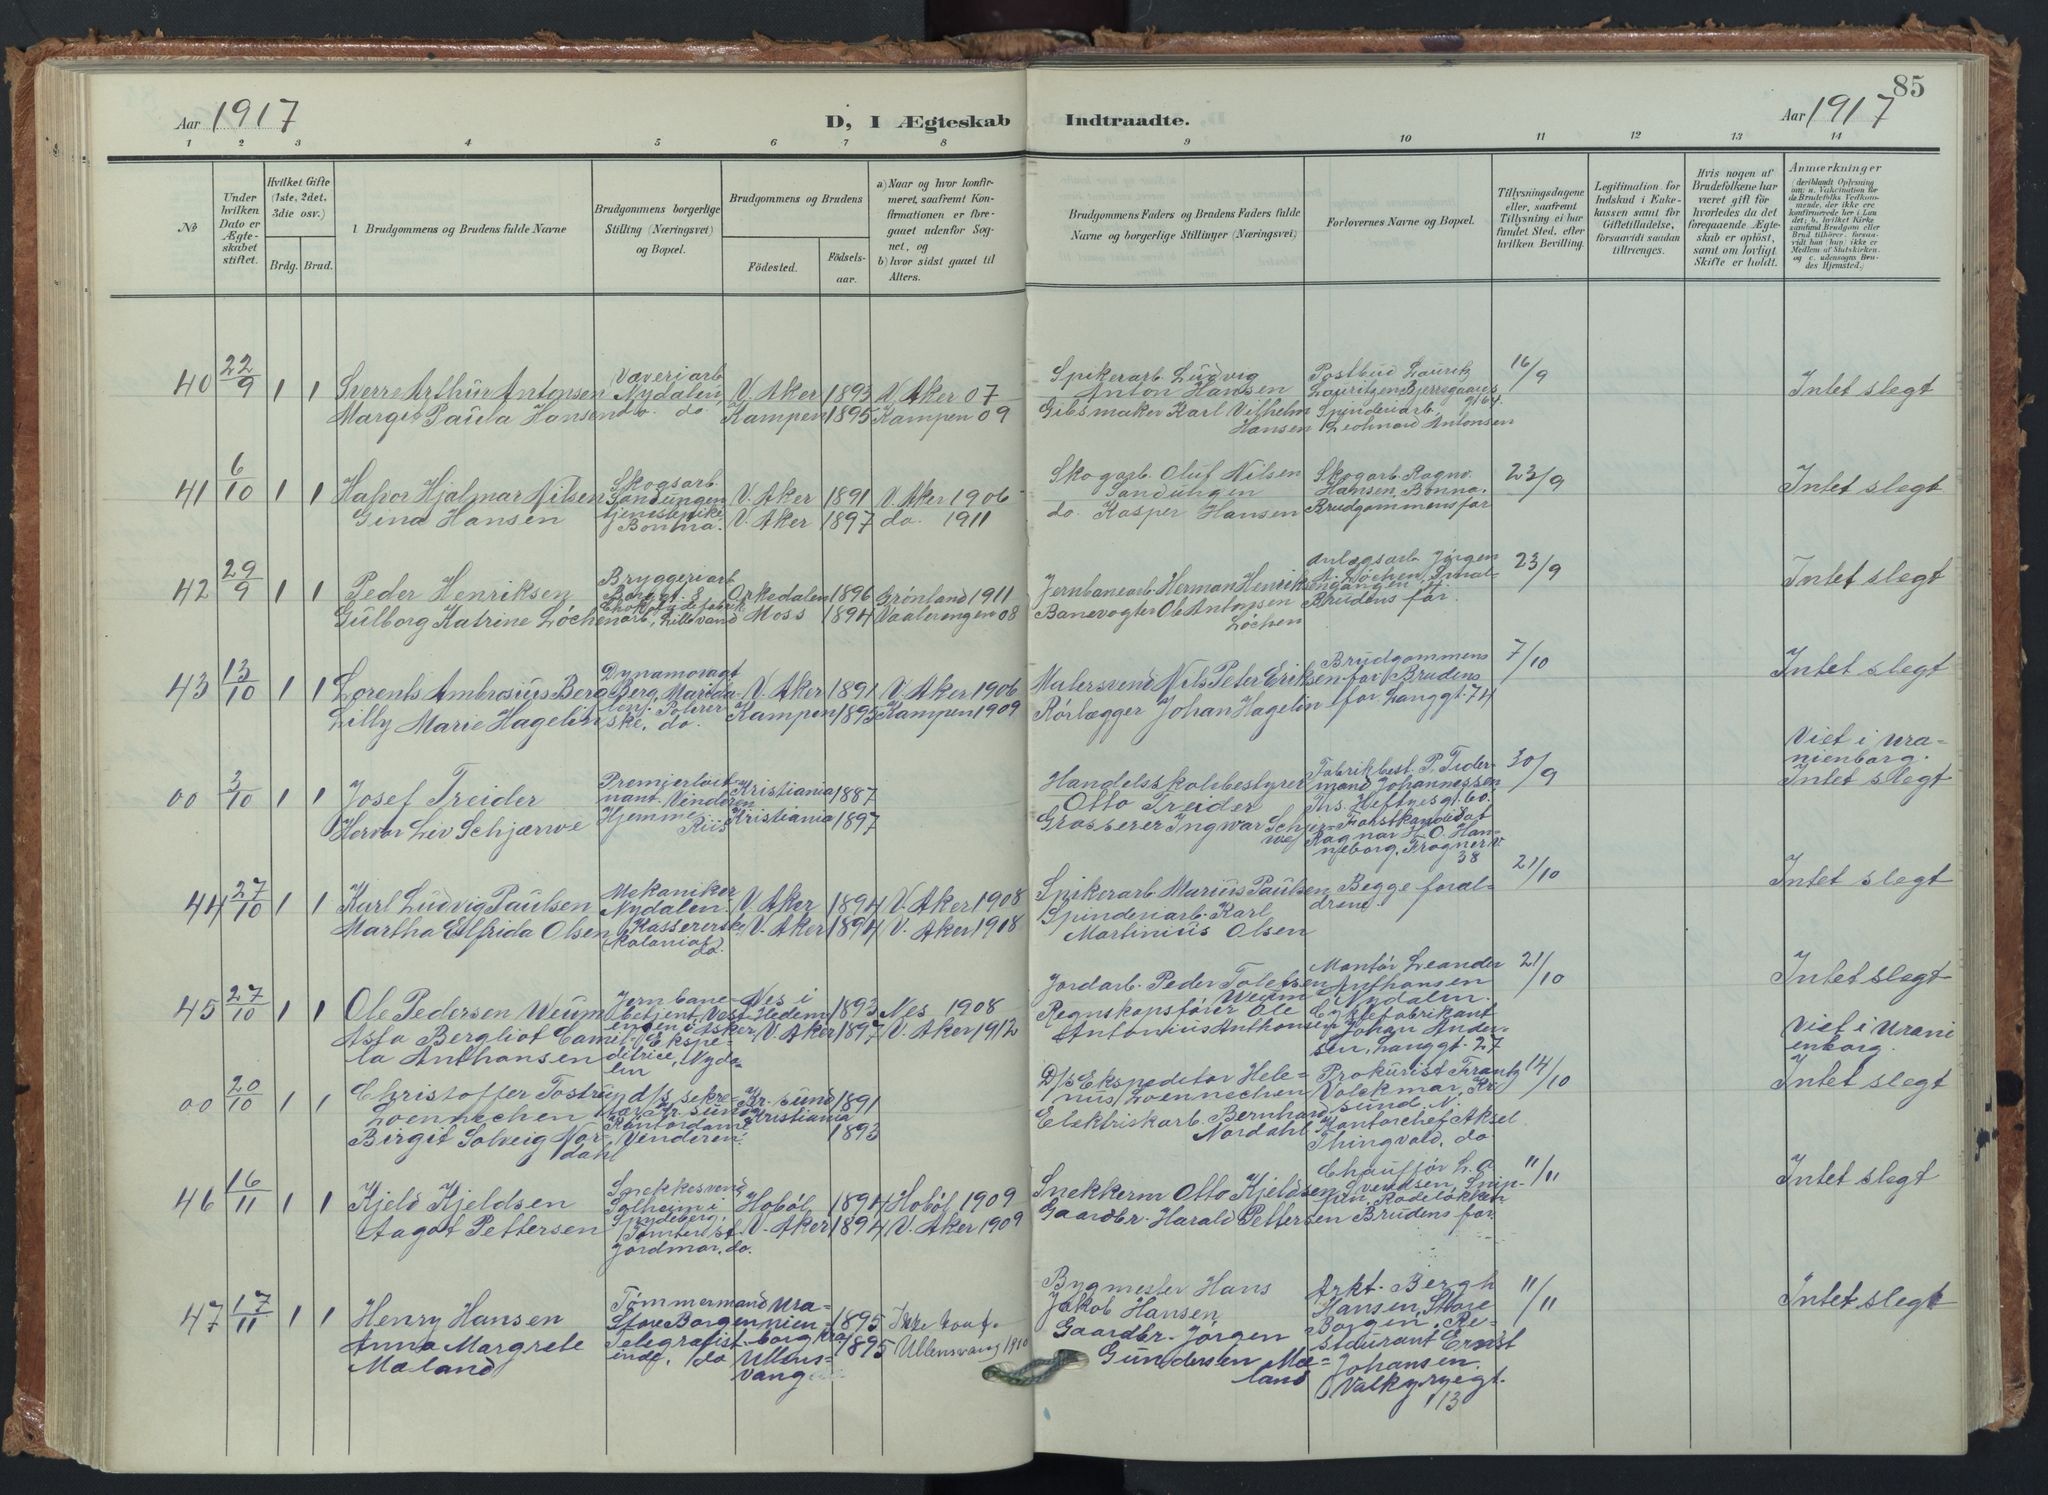 85
Aar 1917
D, I Ægteskab Indtraadte.
Aar 1917
1 2 3 4 5 6 7 8 9 10 11 12 13 14
No
Under hvilken Dato er Ægteskabet stiftet.
Hvilket Gifte (1ste, 2det, 3die osv.)
Brdg. Brud.
Brudgommens og Brudens fulde Navne
Brudgommens borgerlige Stilling (Næringsvei) og Bopæl.
Brudgommens og Brudens
Födested. Födsels-aar.
a) Naar og hvor konfirmeret, saafremt Konfirmationen er foregaaet udenfor Sognet, og
b) hvor sidst gaaet til Alters.
Brudgommens Faders og Brudens Faders fulde Navne og borgerlige Stillinger (Næringsvei)
Forlovernes Navne og Bopæl.
Tillysningsdagene eller, saafremt Tillysning ei har fundet Sted, efter hvilken Bevilling.
Legitimation for Indskud i Enkekassen samt for Giftetilladelse, forsaavidt saadan tiltrænges.
Hvis nogen af Brudefolkene har været gift för hvorledes da det foregaaende Ægteskab er oplöst, samt om lovligt Skifte er holdt.
Anmærkninger
40 22/9 1 1 Sverre Arthur Antonsen Væveriarb. Nydalen V. Aker 1893 V. Aker 07 Spikerarb. Ludvig Anton Hansen Postbud Lauritz Lauritzen 16/9 Intet slegt
Margit Paula Hansen do. do Kampen 1895 Kampen 09 Gibsmaker Karl Vilhelm Hansen Spinderiarb. Leonard Antonsen
41 6/10 1 1 Halvor Hjalmar Nilsen Skogsarb. Sandungen V. Aker 1891 V. Aker 1906 Skogarb. Oluf Nilsen Sandungen Skogarb. Ragnv. Hansen, Bonna. 23/9 Intet slegt
Gina Hansen tjenestepike Bonna. V. Aker 1897 do. 1911 do. Kasper Hansen Brudgommens far
42 29/9 1 1 Peder Henriksen Bryggeriarb Orkedalen 1896 Grønland 1911 Jernbanearb. Herman Henriksen Anlægsarb. Jørgen Løchen, Smalgangen 23/9 Intet slegt
Gulborg Katrine Løchen Chokoladefabrikarb, Lillevand Moss 1894 Vaalerengen 08 Banevogter Ole Antonsen Løchen Brudens far.
43 13/10 1 1 Lorents Ambrosius Berg Dynamovagt Berg, Maridalen V. Aker 1891 V. Aker 1906 Malersvend Nils Peter Eriksen Brudgommens far 7/10 Intet slegt
Lilly Marie Hagelin Polererske, do. Kampen 1895 Kampen 1909 Rörlægger Johan Hagelin Brudens far. Langgt. 74
00 3/10 1 1 Josef Treider Premierløitnant. Vinderen Kristiania 1887 Handelsskolebestyrer Otto Treider Fabrikbest. P. Tidemand Johannessen Ths. Heftyesgt. 60. 30/9 Viet i Uranienborg. Intet slegt
Hervor Liv Schjærve Hjemme Riis Kristiania 1897 Grosserer Ingwar Schjerwe Forstkandidat Ragnar H. O. Hanneborg, Frognerv 38
44 27/10 1 1 Karl Ludvig Paulsen Mekaniker Nydalen. V. Aker 1894 V. Aker 1908 Spikerarb. Marius Paulsen Begge forældrene. 21/10 Intet slegt
Martha Elfrida Olsen Kassererske (Kolonial) do. V. Aker 1894 V. Aker 1908 Spinderiarb. Karl Martinius Olsen
45 27/10 1 1 Ole Pedersen Weum Jernbanebetjent, Vestenden i Asker Nes i Hedem. 1893 Nes 1908 Jordarb. Peder Tolefsen Weum Montør Leander Anthonsen Nydalen. 21/10 Intet slegt
Asta Bergliot Camella Anthonsen Ekspeditrice, Nydalen V. Aker 1897 V. Aker 1912 Regnskapsfører Ole Antonius Anthonsen Cyklefabrikant Johan Andersen, Langgt. 27
00 20/10 1 1 Christoffer Tostrup Loennechen d/s sekretær Kr. sund Kr. sund 1891 D/s Ekspeditør Helenus Loennechen Prokurist Frantz Volckmar, Kr sund N. 14/10 Viet i Uranienborg. Intet slegt
Birgit Solveig Nordahl Kontordame Vinderen. Kristiania 1893 Elektriskarb. Bernhard Nordahl Kontorchef Aksel Thingvold, do
46 16/11 1 1 Kjeld Kjeldsen Snekkersvend, Solheim i Spydeberg, Tomter st Hobøl 1894 Hobøl 1909 Snekkerm Otto Kjeldsen Chauffør L. A. Svendsen, Rodeløkken 11/11 Intet slegt
Aagot Pettersen Jordmor, do. V. Aker 1894 V. Aker 1909 Gaardbr. Harald Pettersen Brudens far
47 17/11 1 1 Henry Hansen Tømmermand Store Borgen Uranienborg 1895 Ikke konf. Bygmester Hans Jakob Hansen, Arkt. Bergh Hansen, Store Borgen, 11/11 Intet slegt
Anna Margrete Mæland Telegrafistinde, do Ullensvang 1895 Ullensvang 1910 Gaardbr. Jörgen Gundersen Mæland Restaurant Ernst Johansen. Valkyryegt. 13